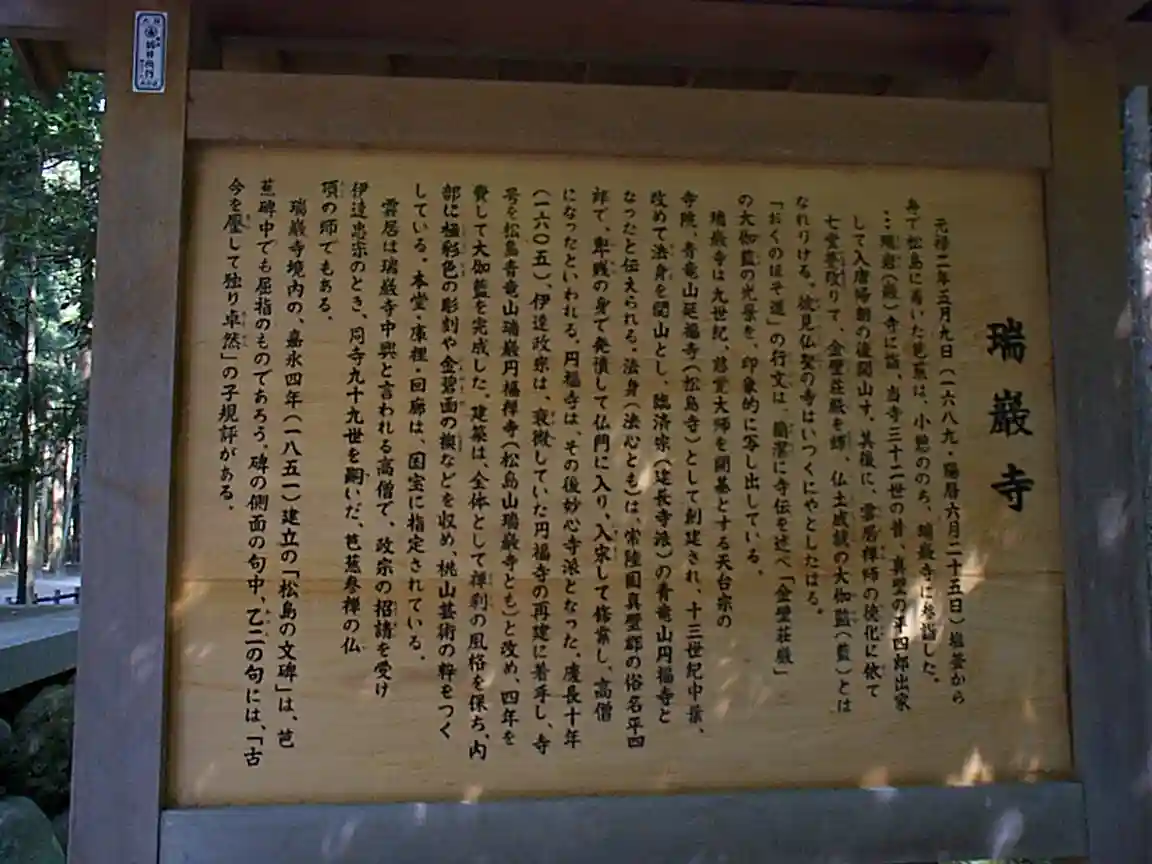 瑞巌寺
元禄二年五月九日(一六八九・陽暦六月二十五日)塩釜から
舟で松島に着いた芭蕉は、小憩ののち、瑞巌寺に参詣した。
…瑞岩(巌)寺に詣、当寺三十二世の昔、真壁の平四郎出家
して入唐帰朝の後開山す。其後に、雲居禅師の徳化に依て
七堂甍改りて、金壁荘厳を輝、仏土成就の大伽監(藍)とは
なれりける。彼見仏聖の寺はいづくにやとしたはる。
「おくのほそ道」の行文は、簡潔に寺伝を述べ「金壁荘厳」
の大伽藍の光景を、印象的に写し出している。
瑞巌寺は九世紀、慈覚大師を開基とする天台宗の
寺院、青竜山延福寺(松島寺)として創建され、十三世紀中葉、
改めて法身を開山とし、臨済宗(建長寺派)の青竜山円福寺と
なったと伝えられる。法身(法心とも)は、常陸国真壁郡の俗名平四
郎で、卑賎の身で発憤して仏門に入り、入宋して修業し、高僧
になったといわれる。円福寺は、その後妙心寺派となった。慶長十年
(一六〇五)、伊達政宗は、衰微していた円福寺の再建に着手し、寺
号を松島青竜山瑞巌円福禅寺(松島山瑞巌寺とも)と改め、四年を
費して大伽藍を完成した。建築は、全体として禅刹の風格を保ち、内
部に極彩色の彫刻や金碧画の襖などを収め、桃山芸術の粋をつく
している。本堂・庫裡・回廊は、国宝に指定されている。
雲居は瑞巌寺中興と言われる高僧で、政宗の招請を受け
伊達忠宗のとき、同寺九十九世を嗣いだ、芭蕉参禅の仏
頂の師でもある。
瑞巌寺境内の、嘉永四年(一八五一)建立の「松島の文碑」は、芭
蕉碑中でも屈指のものであろう。碑の側面の句中、乙二の句には、「古
今を壓して独り卓然」の子規評がある。